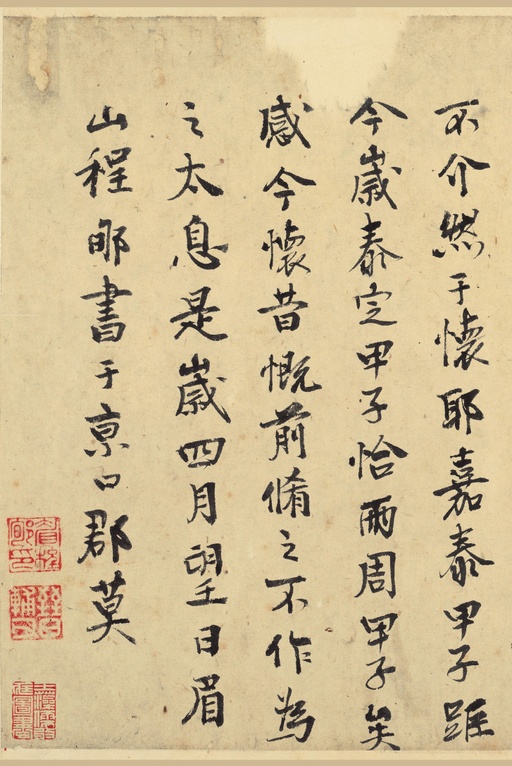 不介然于懷耶嘉泰甲子距
今歲泰定甲子恰兩周甲子矣
感今懷昔慨前脩之不作為
之太息是歲四月望日眉
山程郇書于京口郡莫